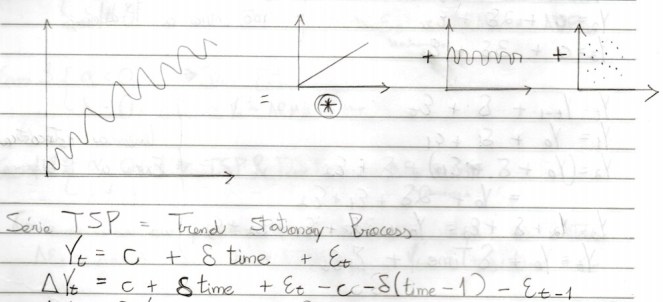 = + +
*
Série TSP = Trend Stationary Process
Yt = c + δ time + Ɛt
ΔYt = c + δ time + Ɛt - c - δ(time - 1) - Ɛt-1